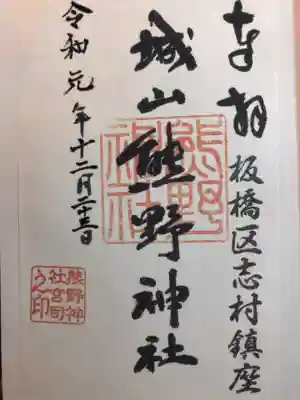 奉拝
板橋区志村鎮座
城山熊野神社
熊野神社
令和元年十二月二十三日
熊野神社宮司之印